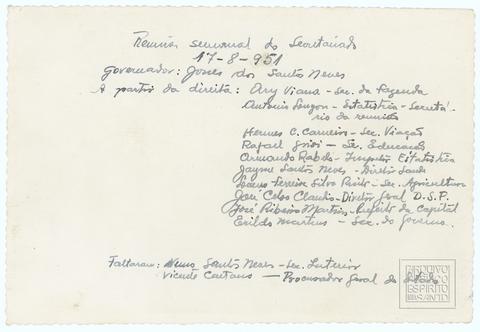 Reunião semanal do Secretariado
17-8-951
Governador: Jones dos Santos Neves
A partir da direita: Ary Viana - Sec. da Fazenda
Antonio - Estatistica - Secretá-
rio da reunião
Hermes C. Carneiro - Sec. Viação
Rafael - Sec. Educação
Armando Rabelo - Inspetor Estatistica
Jayme Santos Neves - Diretor Saude
Ferreira Silva - Sec. Agricultura
José Celso Claudio - Diretor Geral D.S.P.
José Ribeiro Martins - Prefeito da Capital
Erildo Martins - Sec. do Governo.
Faltaram: Nuno Santos Neves - Sec. Interior
Vicente Caetano - Procurador Geral do Estado
ARQUIVO
PÚBLICO
ESPÍRITO
SANTO